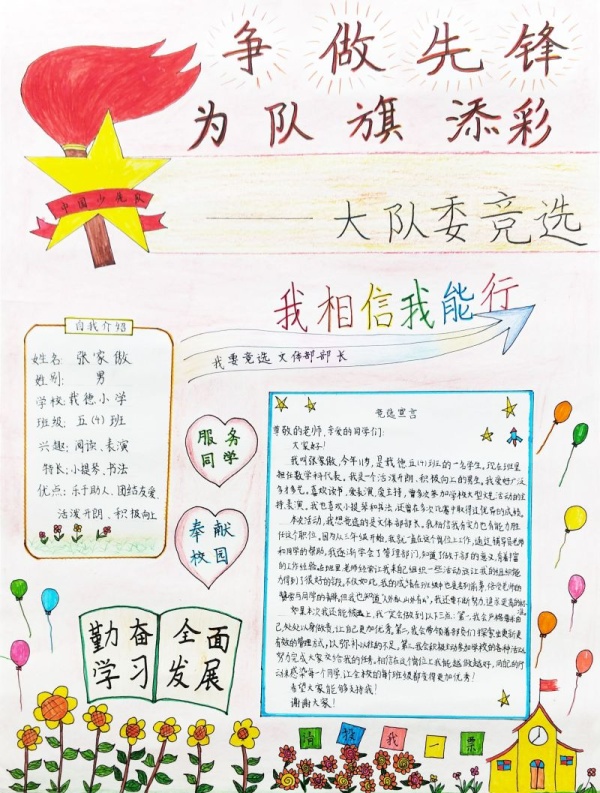 争做先锋
为队旗添彩
中国少先队
——大队委竞选
我相信我能行
我要竞选文体部部长
自我介绍
姓名：张家傲
性别：男
学校：载德小学
班级：五(4)班
兴趣：阅读、表演
特长：小提琴、书法
优点：乐于助人、团结友爱、
活泼开朗、积极向上
服务
同学
奉献
校园
勤奋
学习
全面
发展
竞选宣言
尊敬的老师，亲爱的同学们：
大家好！
我叫张家傲，今年11岁，是我德五(4)班的一名学生，现在班里
担任数学科代表。我是一个活泼开朗、积极向上的男生。我爱好广泛
多才多艺，喜欢读书、爱表演、
表演。我也喜欢小提琴和书法，还曾在多次比赛中取得过优异的成绩。
本次活动，我想竞选的是文体部部长。我相信我有实力也有能力胜
任这个职位。因为从三年级开始，我就一直在这个岗位上工作，通过辅导员老师
和同学的帮助，我逐渐学会了管理部门，知道了
的工作经验。在班里老师经常让我来组织一些活动
力得到了很好的锻炼。不仅如此，我的成绩在班级中也是名列前茅，
如果本次我还能候选上，我一定会做到以下三点：第一，我会严格要求自
己，处处以身做责，让自己更加优秀。第二，我会带领着部委们探索出更新更
有效的管理方式，以弥补以往的不足。第三，我会积极主动参加学校的各种活动，
努力完成大家交给我的任务。相信在这个岗位上我能越做越好，用我的行
动来感染每一个同学，让全校的每个班级都变得更加优秀！
希望大家能够支持我！
谢谢大家！
请投我一票